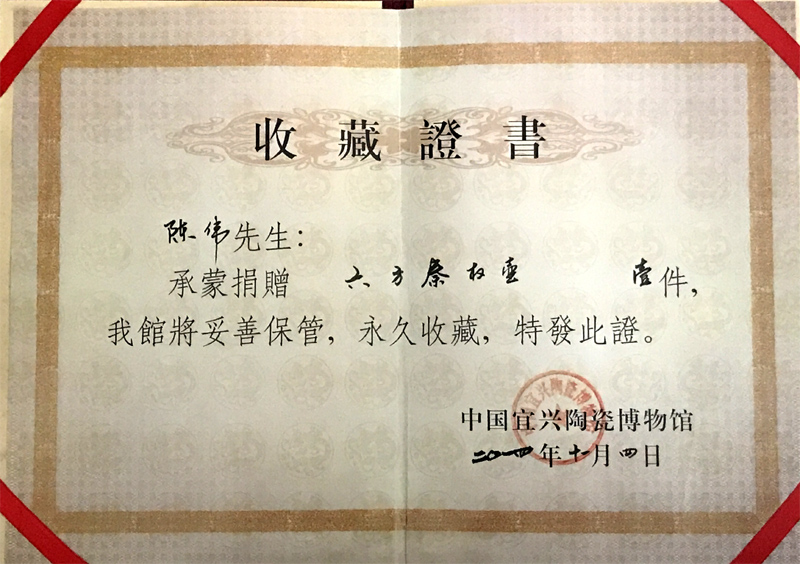 收藏證書
陈伟先生：
承蒙捐贈 六方秦权壶 壹件，
我館將妥善保管，永久收藏，特發此證。
中国宜兴陶瓷博物馆
二〇一四年十一月四日